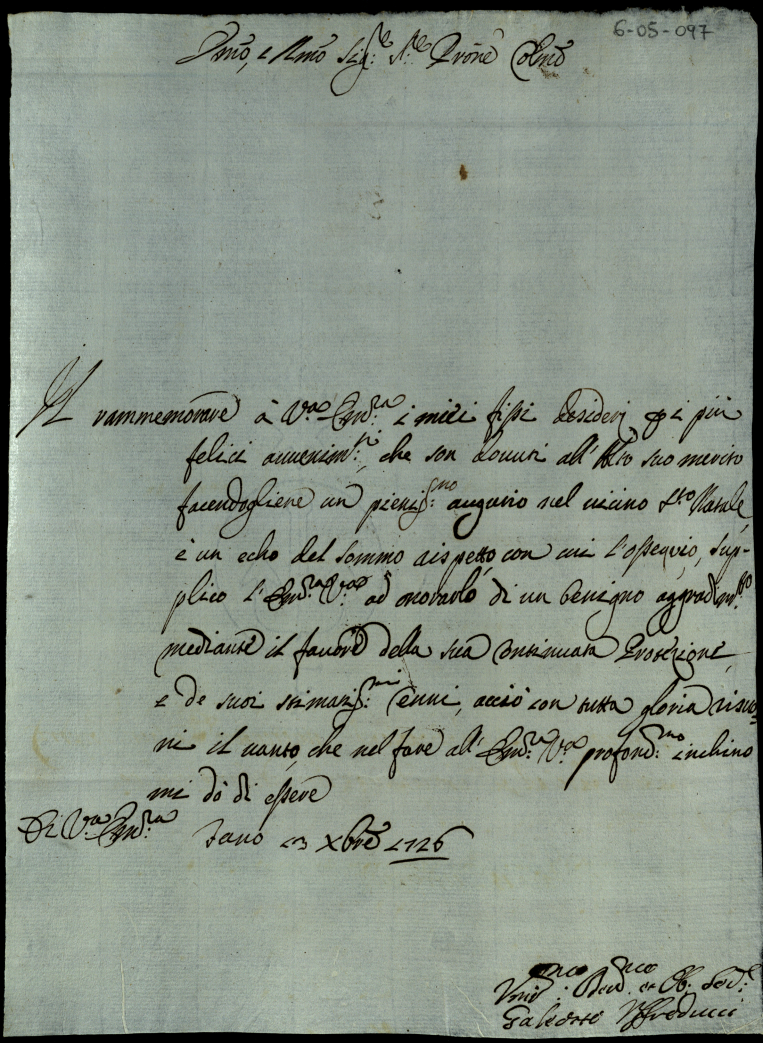 6-05-097
Emo, e Rmo Sig.re S.re Prone Colmo
Il rammemorare à V.ra Em.za i miei fissi desiderj p i più
felici avvenim.ti, che son dovuti all'Alto suo merito
facendogliene un pieniss.mo augurio nel vicino S.to Natale,
è un echo del sommo rispetto con cui l'ossequio, sup-
plico l'Em.za V.ra ad onorarlo di un benigno aggradim.to
mediante il favore della sua continuata Protezione,
e de suoi stimatiss.mi cenni, acciò con tutta gloria
ni il vanto, che nel fare all'Em.za V.ra profond.mo inchino
mi dò di essere
Di V.ra Em.za Fano 23 Xbre 1726
Umo. Devmo. et Ob. Serv.e
Galeotto Uffreducci